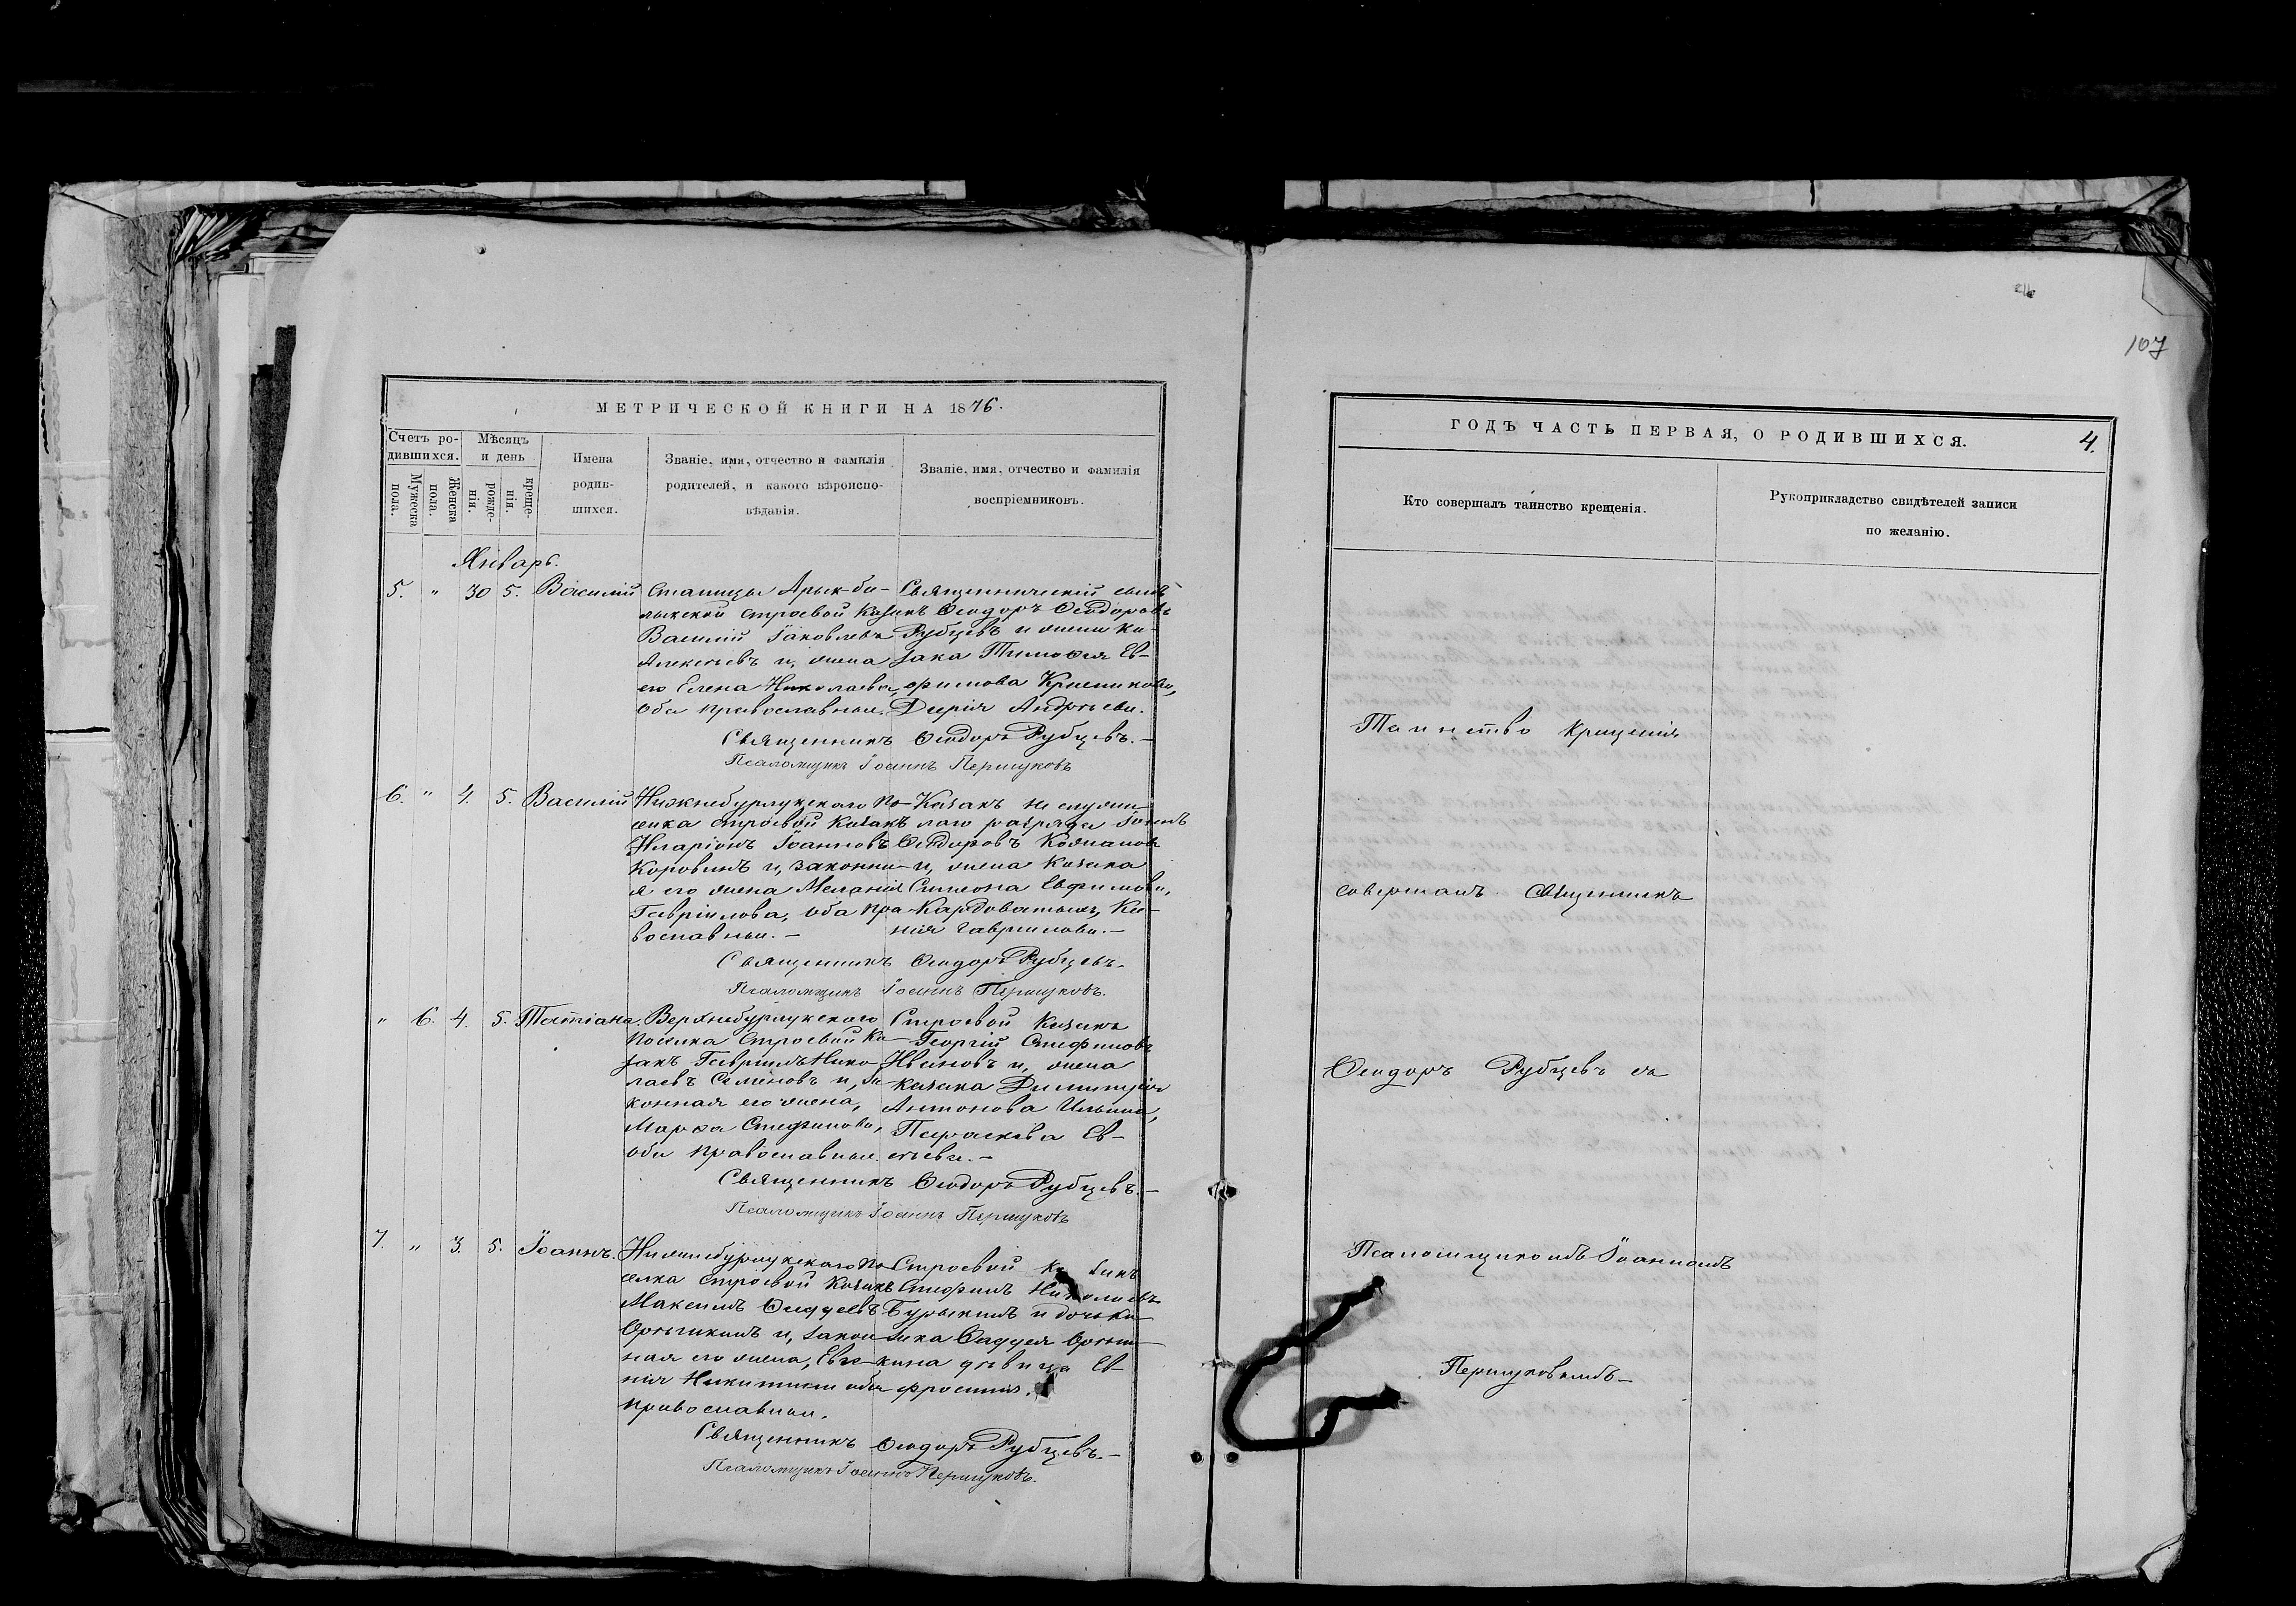 МЕТРИЧЕСКОЙ КНИГИ НА 1876.
Счетъ ро-
дившихся.
Мужеска пола.
Женска пола.
Мѣсяцъ
и день
рожде-
нія.
креще-
нія.
Имена
родив-
шихся.
Званіе, имя, отчество и фамилія
родителей, и какого вѣроиспо-
вѣданія.
Званіе, имя, отчество и фамилія
воспріемниковъ.
Январь.
5. " 30 5. Василій
Станицы Арык-ба-
лыкской строевой Казакъ
Василій Іаковлевъ
Алексѣевъ и, жена
его Елена Николаева,
оба православные.
Священническій сынъ
Ѳеодоръ Ѳеодоровъ
Рубцевъ и жена ка-
зака Тимоѳея Ев-
фимова
Дарія Андрѣева.
Священникъ Ѳеодоръ Рубцевъ.—
Псаломщикъ Іоаннъ Першуковъ
6. " 4. 5. Василій
Нижнебурлукского по-
селка строевой Казакъ
Иларіонъ Іоанновъ
Коровинъ и, законна-
я его жена Меланія
Гавріилова, оба пра-
вославные.—
Казакъ не служи-
лаго разряда Іоаннъ
Ѳеодоровъ
и, жена Казака
Симеона Евфимова,
Ксе-
нія Гавриилова.—
Священникъ Ѳеодоръ Рубцевъ.
Псаломщикъ Іоаннъ Першуковъ.
" 6. 4. 5. Татіана.
Верхнебурлукского
поселка Строевой Ка-
закъ Гавріилъ Нико-
лаевъ Семеновъ и, за-
конная его жена,
Марѳа Стефанова,
оба православные.
Строевой Казакъ
Георгій Стефановъ
Ивановъ и, жена
казака Димитрія
Антонова Ильина,
Параскева Ев-
сѣева.—
Священникъ Ѳеодоръ Рубцевъ.—
Псаломщикъ Іоаннъ Першуковъ
7. " 3. 5. Іоаннъ.
Нижнебурлукского по-
селка строевой Казакъ
Максимъ Ѳаддеевъ
и, закон-
ная его жена, Евге-
нія Никитина оба
православные.
Строевой Казакъ
Стефанъ Николаевъ
Бурыкинъ и дочь ка-
зака Ѳаддея
дѣвица Ев-
фросинія.
Священникъ Ѳеодоръ Рубцевъ.—
Псаломщикъ Іоаннъ Першуковъ.
107
ГОДЪ ЧАСТЬ ПЕРВАЯ, О РОДИВШИХСЯ.
4.
Кто совершалъ таинство крещенія.
Рукоприкладство свидѣтелей записи
по желанію.
Таинство Крещенія
совершалъ Священникъ
Ѳеодоръ Рубцевъ съ
Псаломщикомъ Іоанномъ
Першуковымъ—